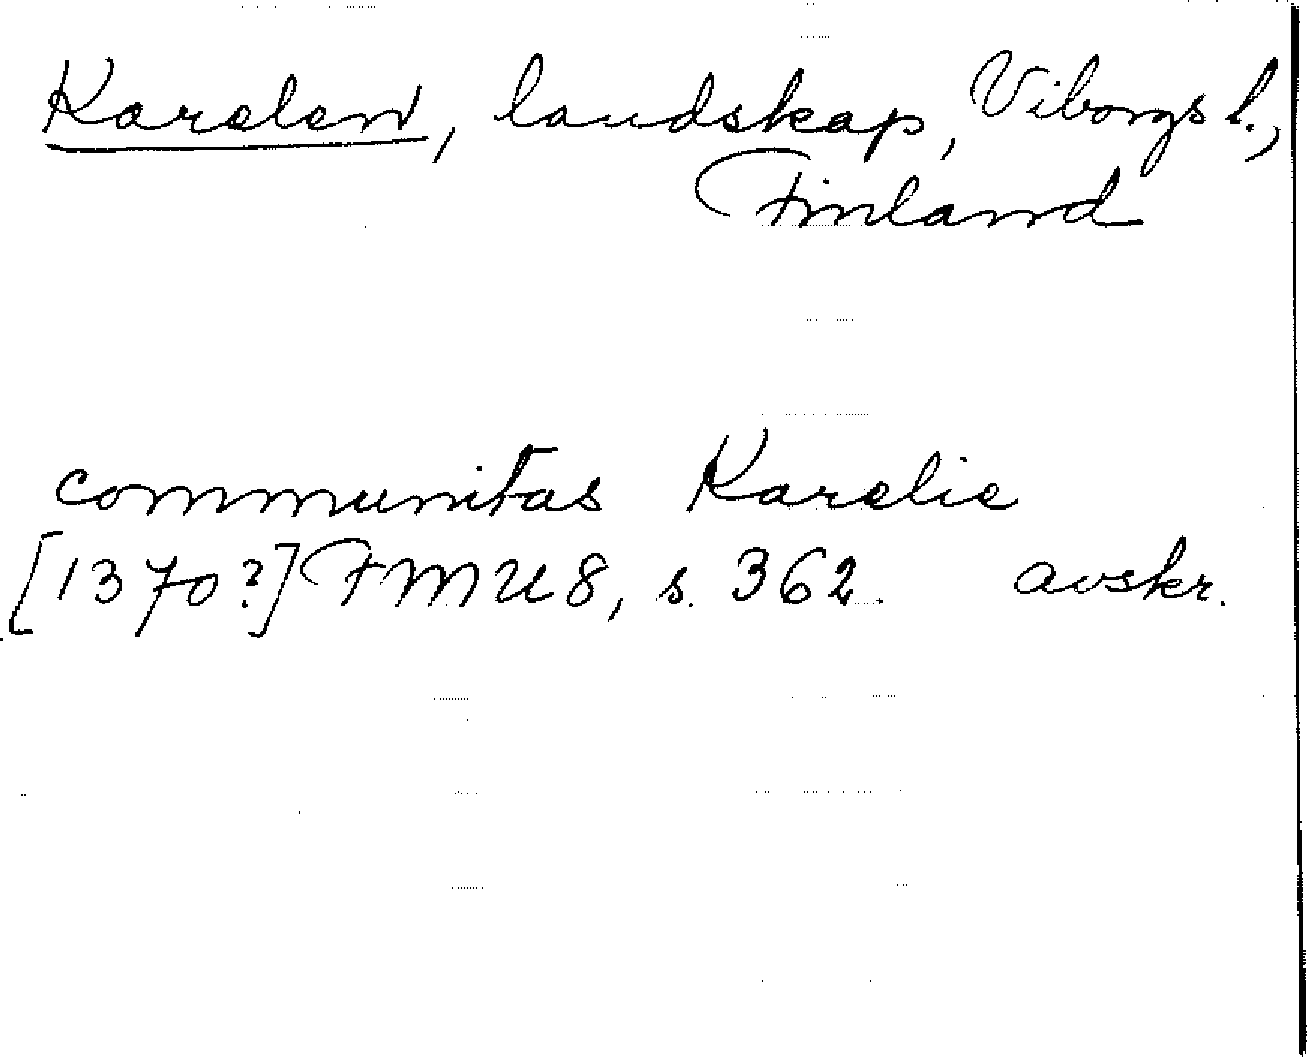 Karelen, landskap, Viborgs l.,
Finland
communitas Karelie
[1370?] FMU 8, s. 362. avskr.